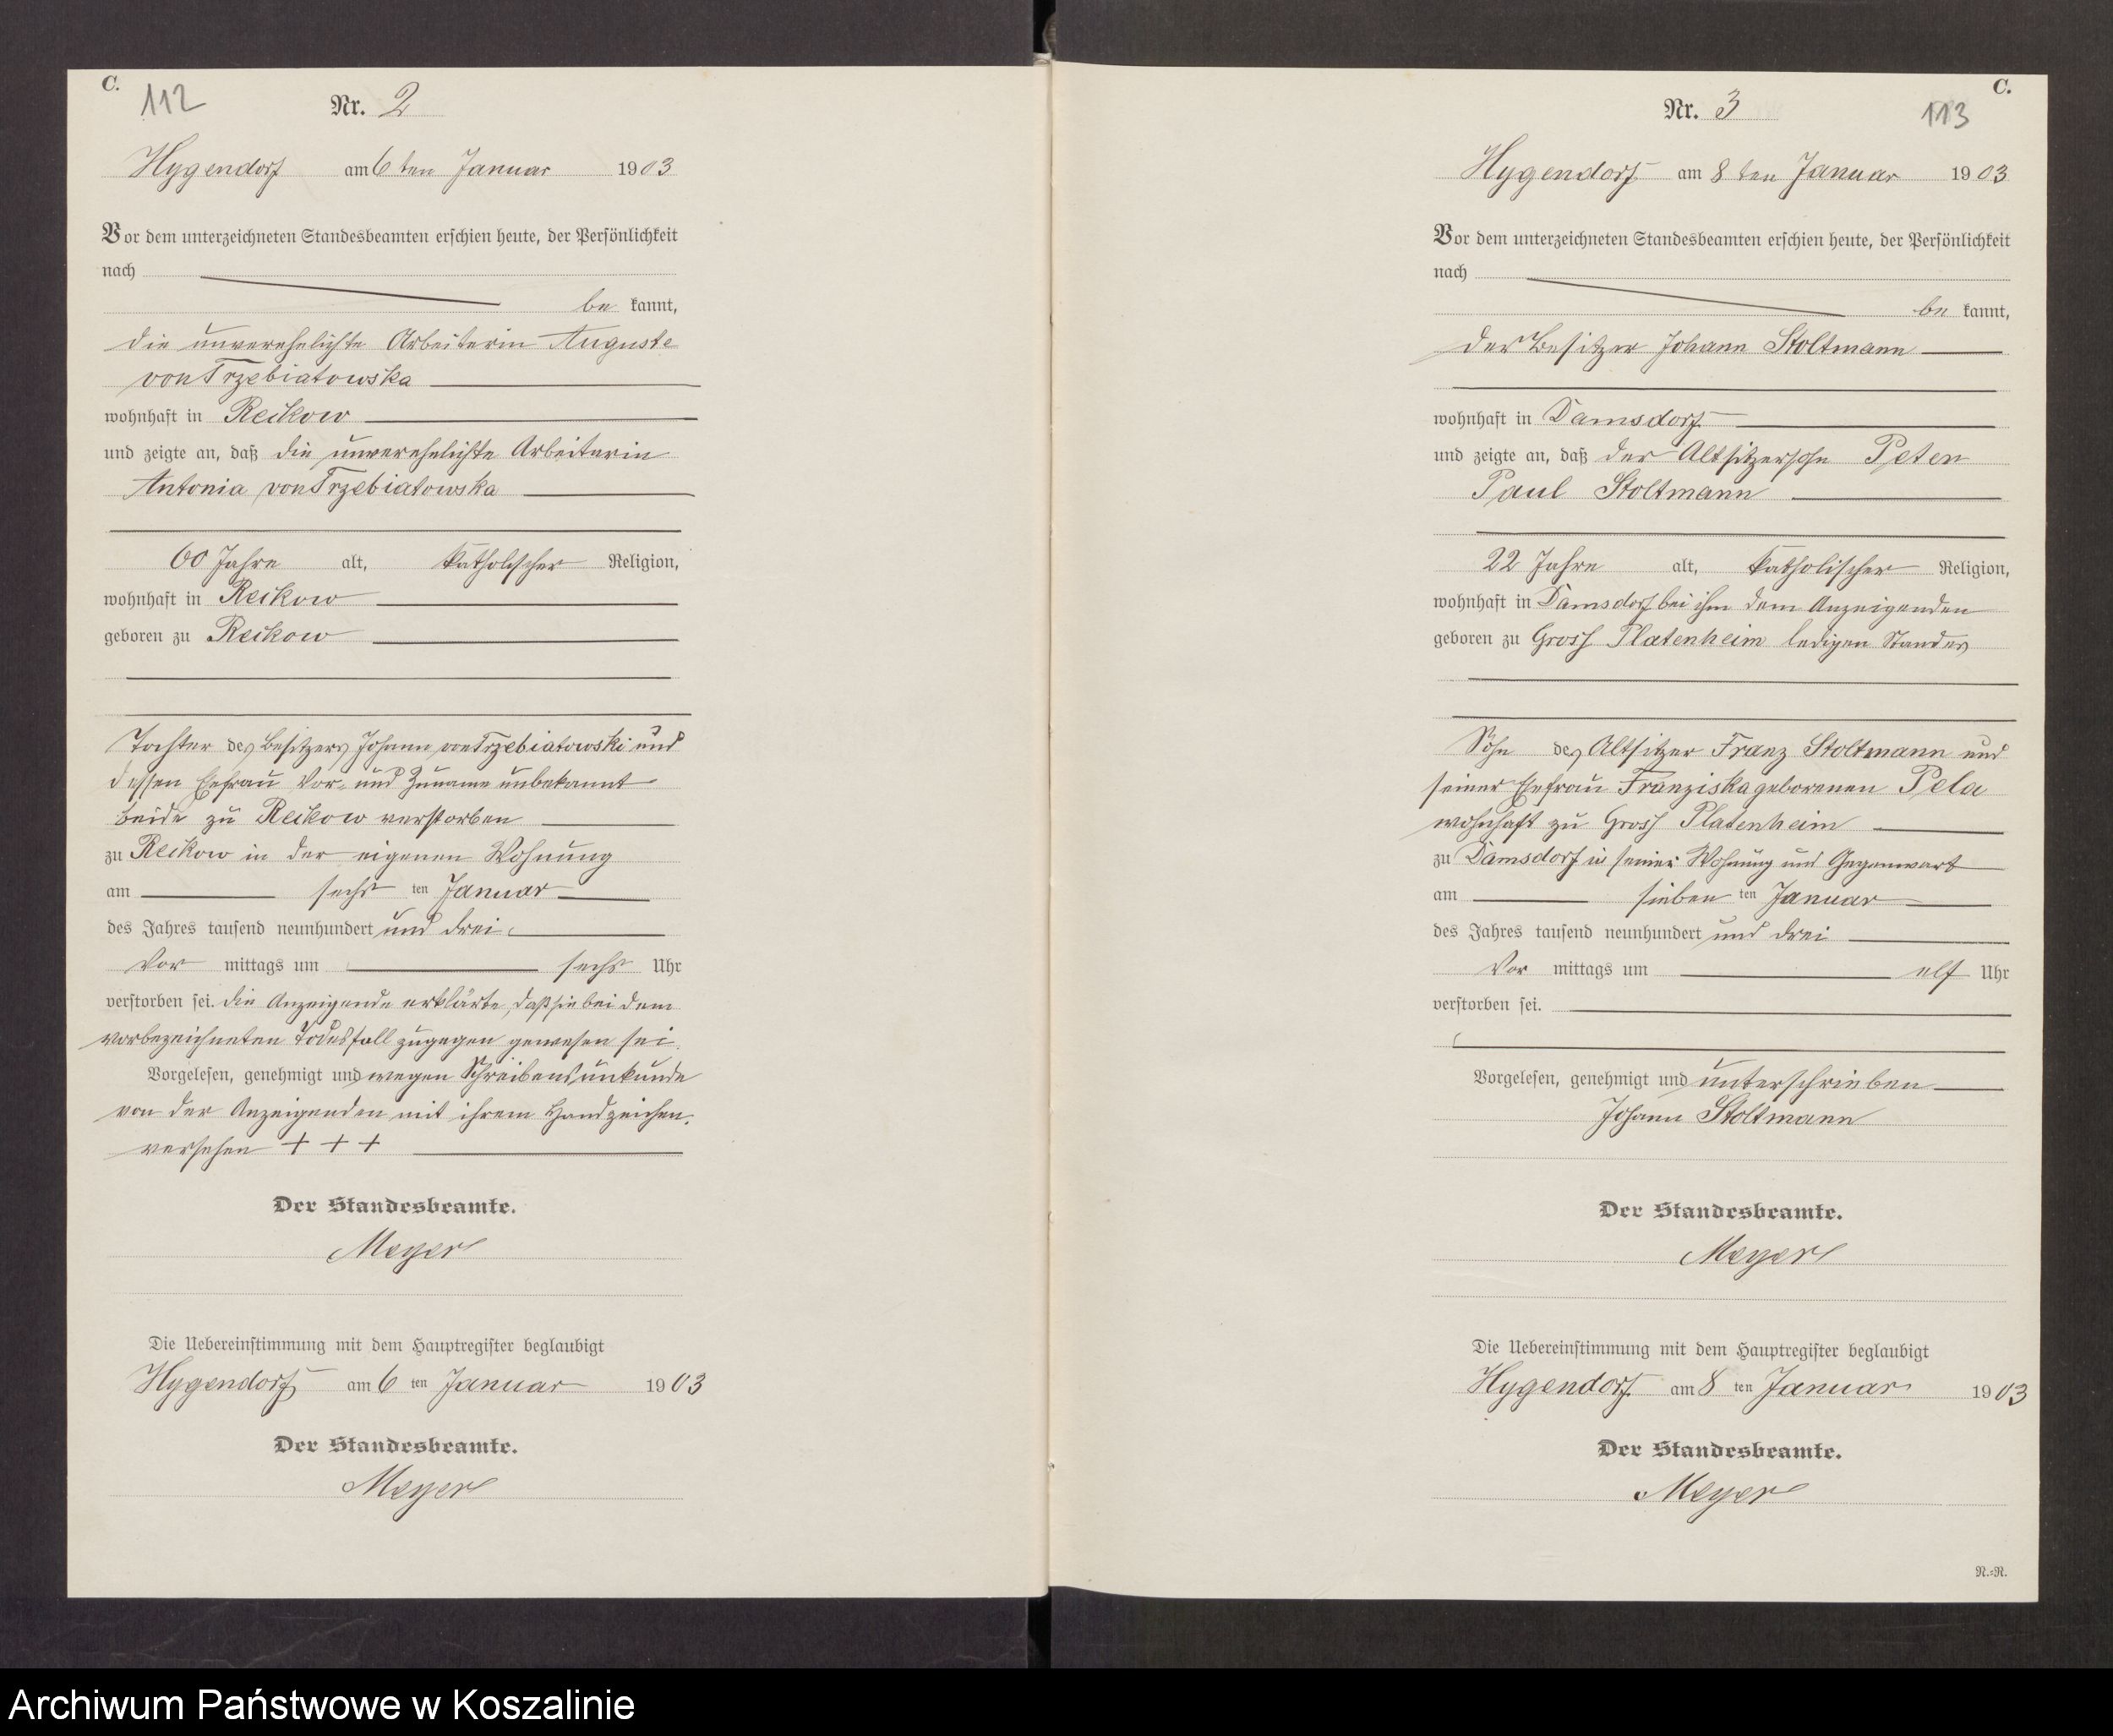 C.
112
Nr. 2
Hygendorf am 6 ten Januar 1903
Vor dem unterzeichneten Standesbeamten erschien heute, der Persönlichkeit
nach
be kannt,
die unverehelichte Arbeiterin Auguste
von Trzebiatowska
wohnhaft in Reckow
und zeigte an, daß die unverehelichte Arbeiterin
Antonia von Trzebiatowska
60 Jahre alt, katholischer Religion,
wohnhaft in Reckow
geboren zu Reckow
Tochter des Besitzers Johann von Trzebiatowski und
dessen Ehefrau Vor- und Zuname unbekannt
beide zu Reckow verstorben
zu Reckow in der eigenen Wohnung
am sechs ten Januar
des Jahres tausend neunhundert und drei
Vor mittags um sechs Uhr
verstorben sei. Die Anzeigende erklärte, daß sie bei dem
vorbezeichneten Todesfall zugegen gewesen sei.
Vorgelesen, genehmigt und wegen Schreibensunkunde
von der Anzeigenden mit ihrem Handzeichen
versehen + + +
Der Standesbeamte.
Meyer
Die Uebereinstimmung mit dem Hauptregister beglaubigt
Hygendorf am 6 ten Januar 1903
Der Standesbeamte.
Meyer
C.
Nr. 3
113
Hygendorf am 8 ten Januar 1903
Vor dem unterzeichneten Standesbeamten erschien heute, der Persönlichkeit
nach
be kannt,
der Besitzer Johann Stoltmann
wohnhaft in Damsdorf
und zeigte an, daß der Altsitzersohn Peter
Paul Stoltmann
22 Jahre alt, katholischer Religion,
wohnhaft in Damsdorf bei ihm dem Anzeigenden
geboren zu Gross Platenheim ledigen Standes
Sohn des Altsitzer Franz Stoltmann und
seiner Ehefrau Franziska geborenen Pela
wohnhaft zu Gross Platenheim
zu Damsdorf in seiner Wohnung und Gegenwart
am sieben ten Januar
des Jahres tausend neunhundert und drei
Vor mittags um elf Uhr
verstorben sei.
Vorgelesen, genehmigt und unterschrieben
Johann Stoltmann
Der Standesbeamte.
Meyer
Die Uebereinstimmung mit dem Hauptregister beglaubigt
Hygendorf am 8 ten Januar 1903
Der Standesbeamte.
Meyer
N.=N.
Archiwum Państwowe w Koszalinie